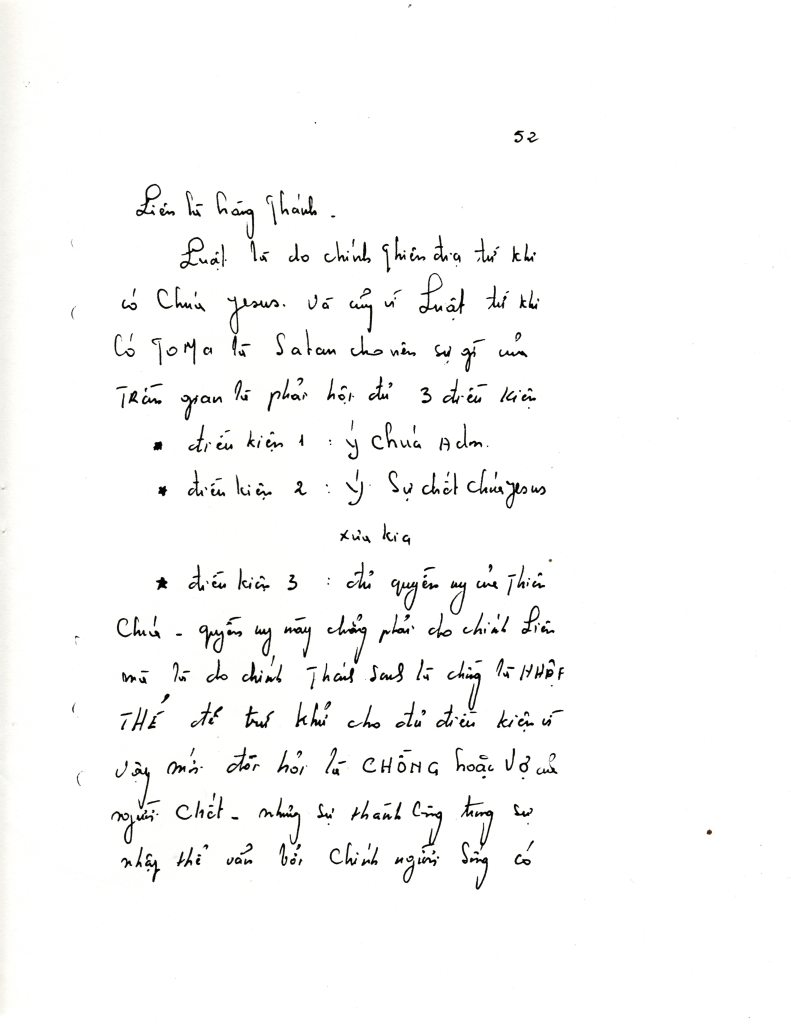 52
Liên là hàng Thánh.
Luật là do chính Thiên địa từ khi
có Chúa Jesus. Và cũng vì Luật từ khi
Có TOMA là Satan cho nên sự gì của
TRần gian là phải hội đủ 3 điều kiện
* điều kiện 1 : Ý Chúa Adn.
* điều kiện 2 : Ý Sự chết Chúa Jesus
xưa kia
* điều kiện 3 : đủ quyền uy của Thiên
Chúa - quyền uy này chẳng phải do chính Liên
mà là do chính Thánh Saul là chồng là NHẬP
THỂ để trừ khử cho đủ điều kiện vì
vậy mới đòi hỏi là CHỒNG hoặc VỢ của
người Chết - nhưng sự thành công trong sự
nhập thể vẫn bởi Chính người Sống có